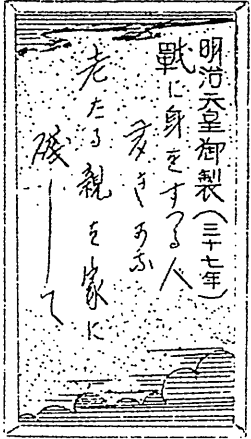 明治天皇御製(三十七年)
戰に身をすつる人
多きかな
老たる親を家に
殘して